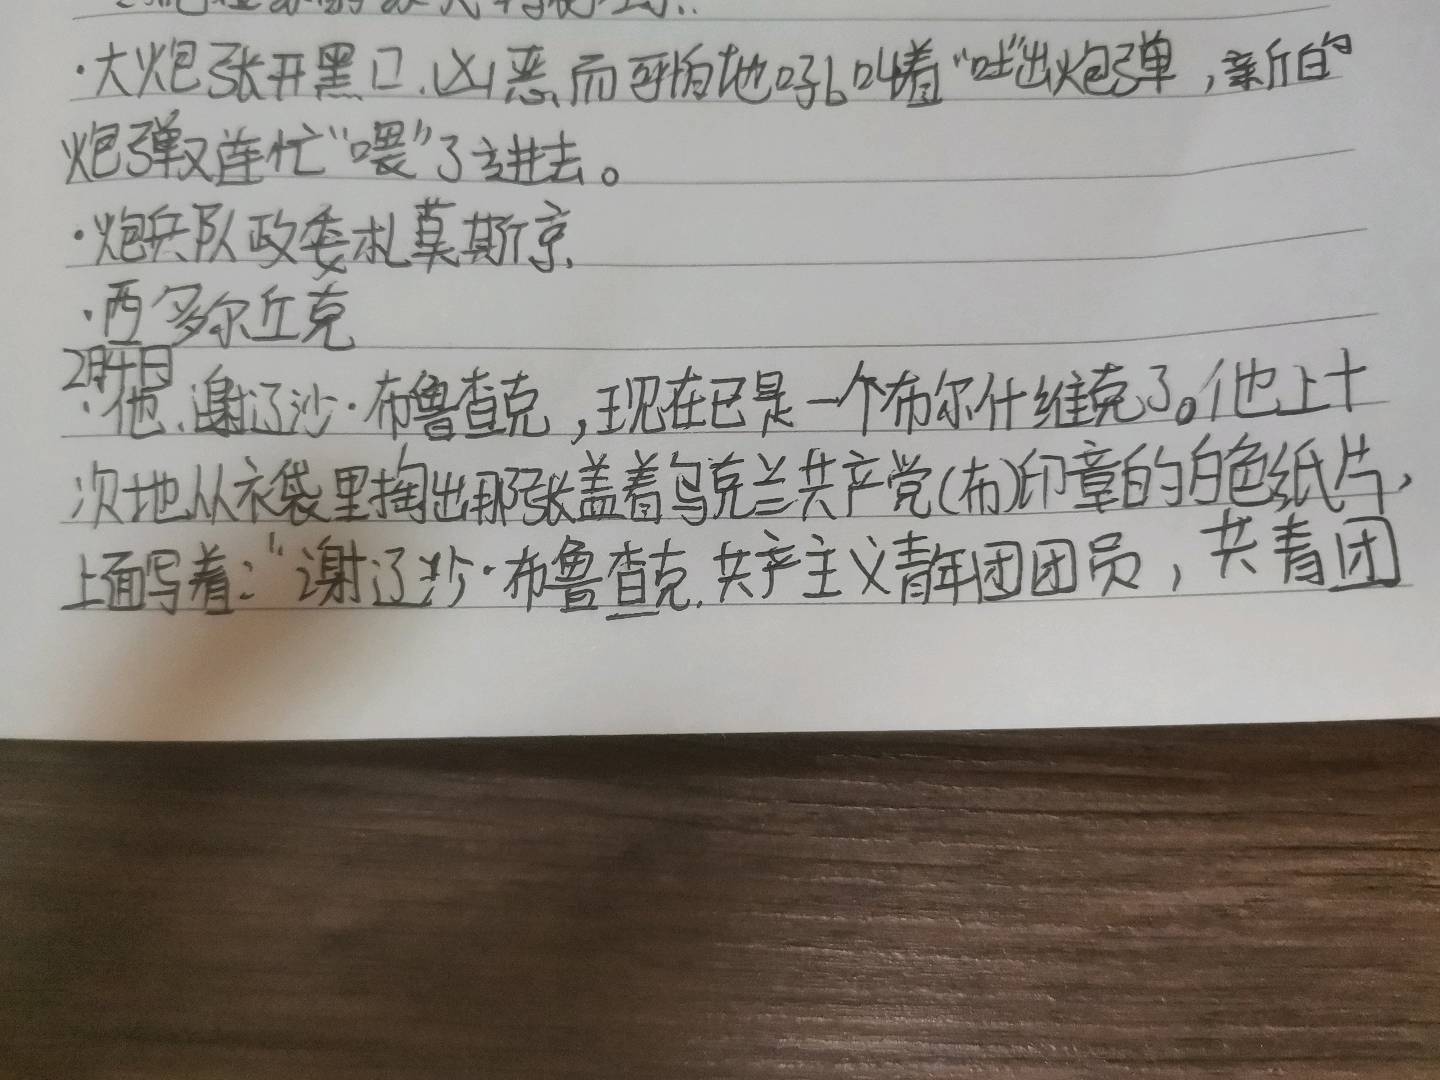 ·大炮张开黑口、凶恶而可怕地吼叫着“吐”出炮弹，新的
炮弹又连忙“喂”了进去。
·炮兵队政委札莫斯京、
·西多尔丘克
2月4日
·他、谢辽沙·布鲁查克，现在已是一个布尔什维克了。他上十
次地从衣袋里掏出那张盖着乌克兰共产党(布)印章的白色纸片，
上面写着：“谢辽沙·布鲁查克、共产主义青年团团员，共青团